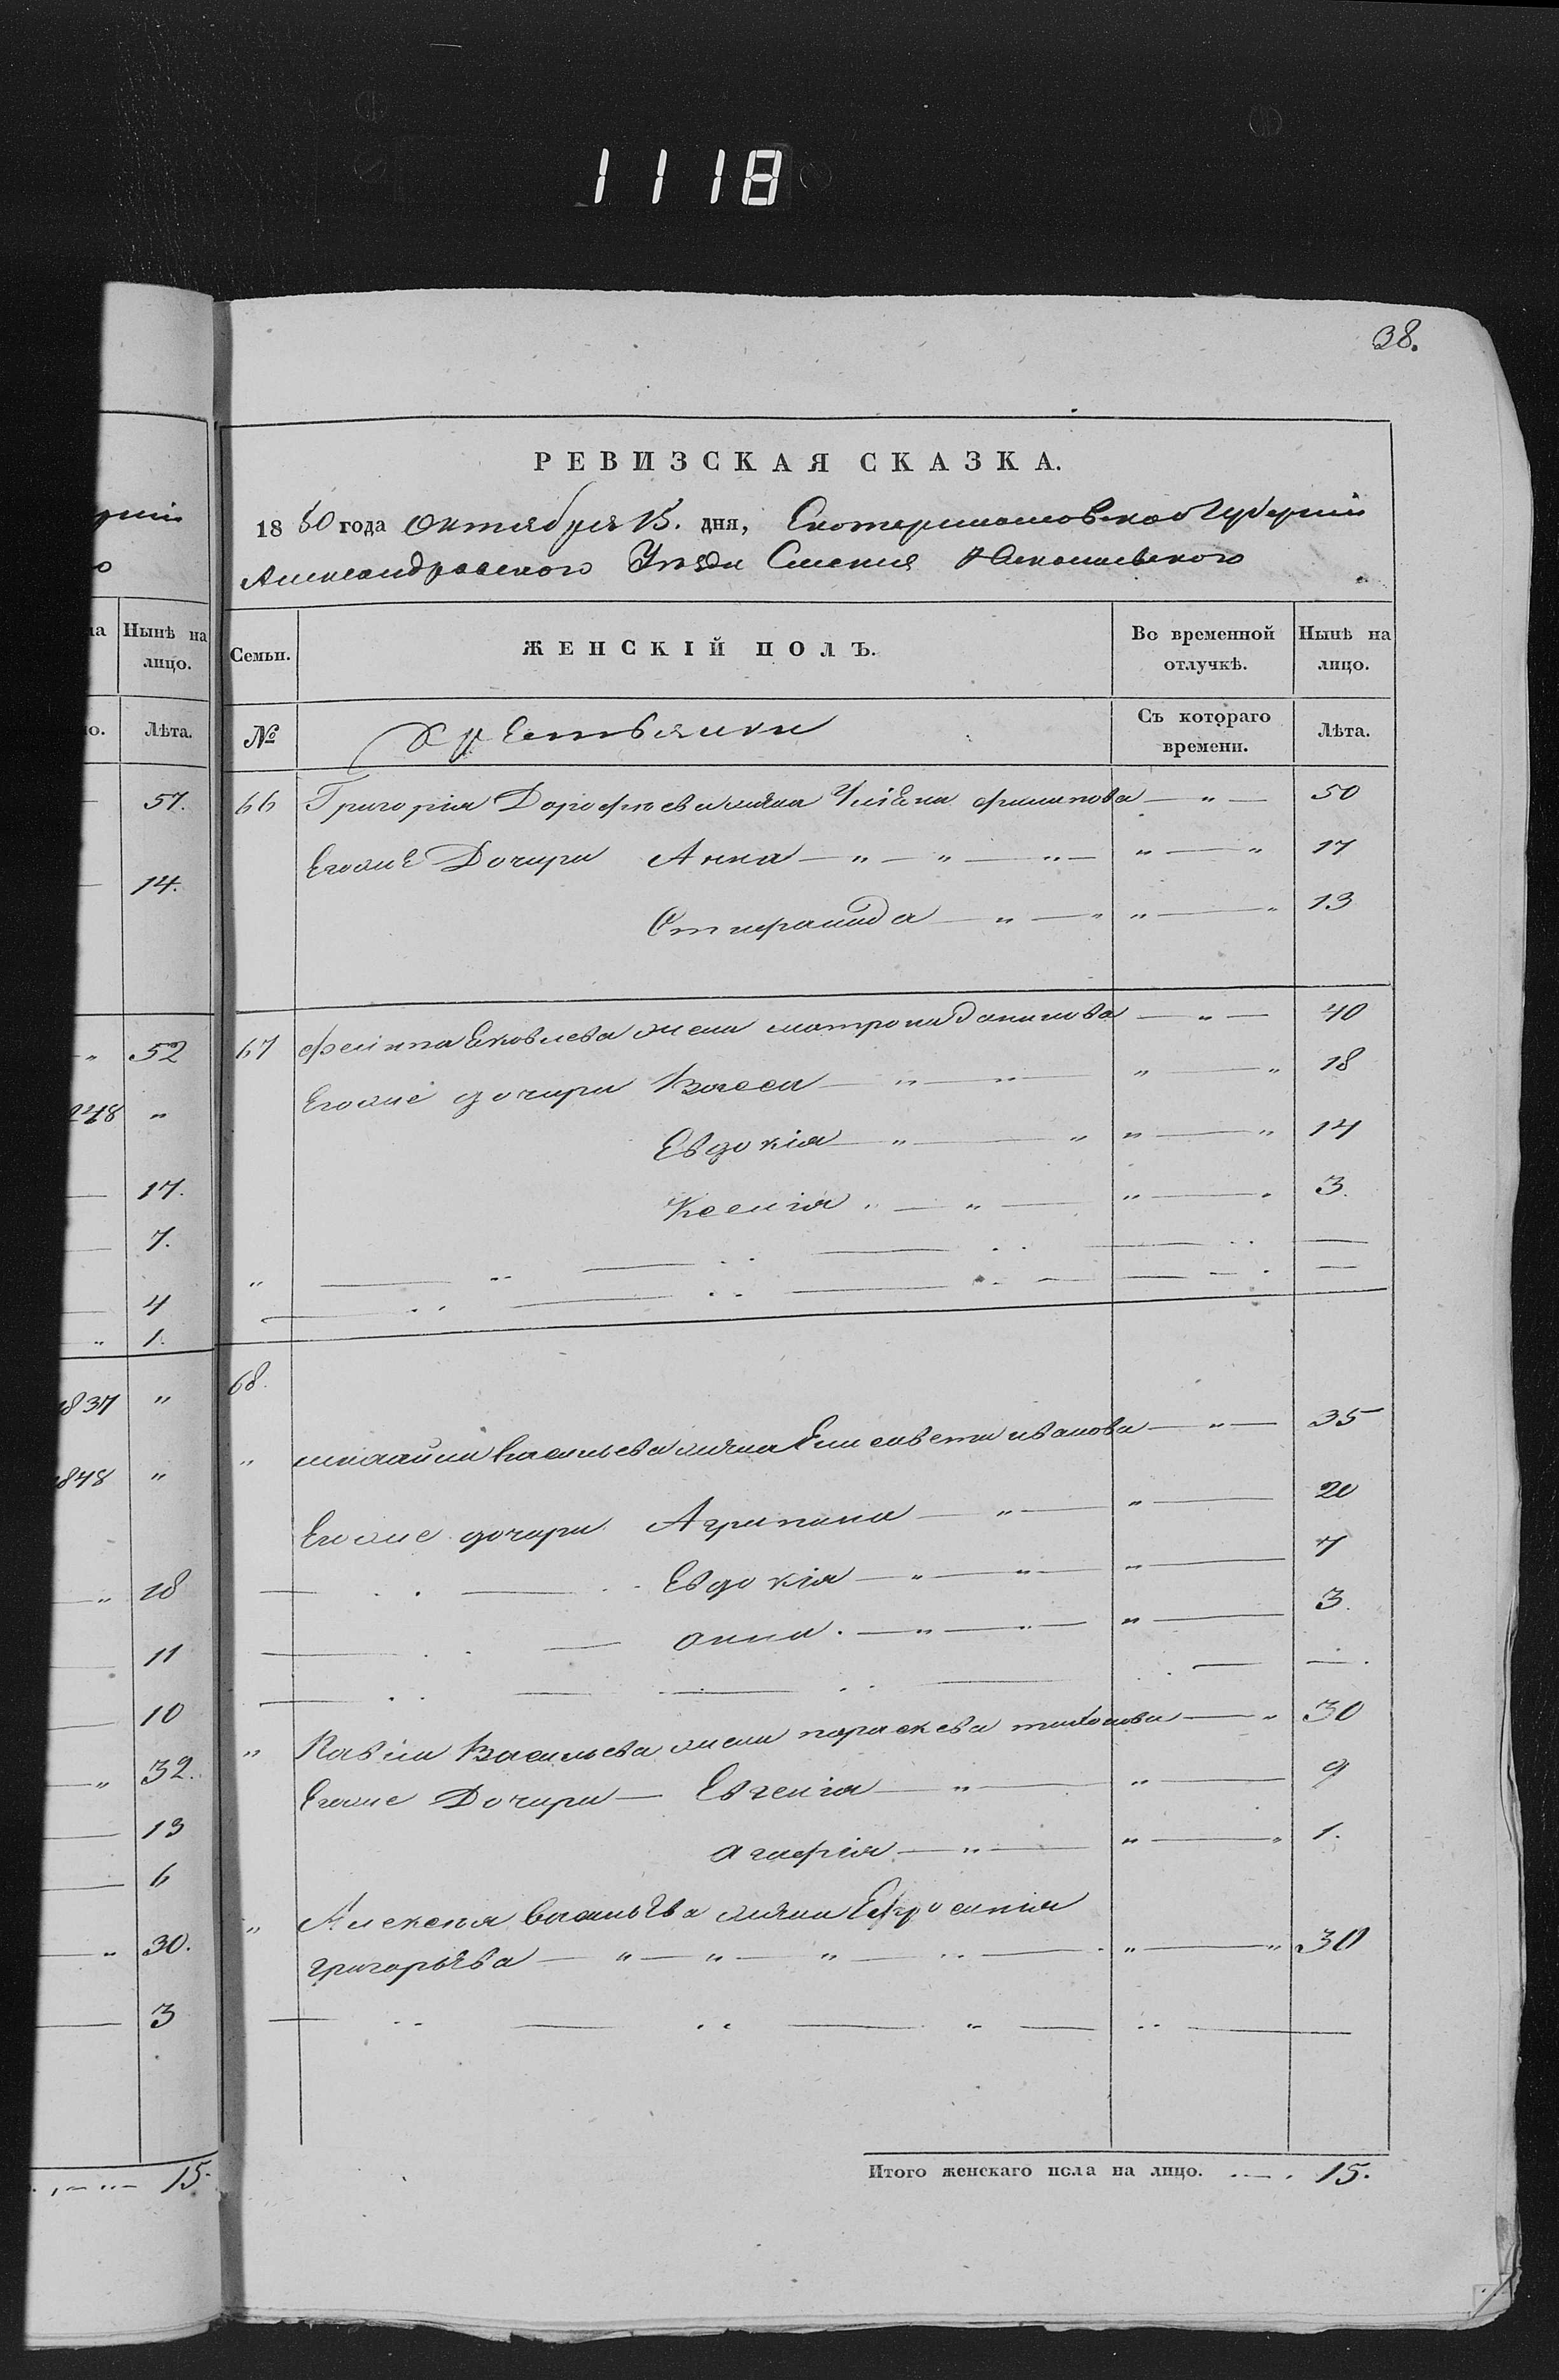 1118
38.
РЕВИЗСКАЯ СКАЗКА.
1850 года Октября 15. дня, Екатеринославской Губернии
Александровского Уезда Селения
Нынѣ на лицо.
Лѣта.
57.
14.
52
248 "
17.
7.
4
1.
1837 "
1848 "
18
11
10
32.
13
6
30.
3
15.
Семьи. ЖЕНСКІЙ ПОЛЪ. Во временной отлучкѣ. Нынѣ на лицо.
№ Крестьянки Съ котораго времени. Лѣта.
66 Григорія Дорофѣева жена Филипова — " — 50
Егоже Дочери Анна — " — " — " — " — " 17
13
67 Филипа Яковлева жена матрона данилова — " — 40
Егоже дочери Васса — " — " — " — " 18
Евдокія — " — " " — " 14
Ксенія " — " — " — " 3.
68.
" михайла Васильева жена Елисавета иванова — " — 35
Егоже дочери Агрипина — " — " — 20
Евдокія — " — " — " — 7
анна. — " — " — " — 3.
" Павла Васильева жена параскева тихонова — " 30
Егоже Дочери — Евгенія — " — " — 9
агафія — " — " — " 1.
" Алексея Васильева жена Ефросинія
григорьева — " — " — " — " — " — " 30
Итого женскаго пола на лицо. 15.